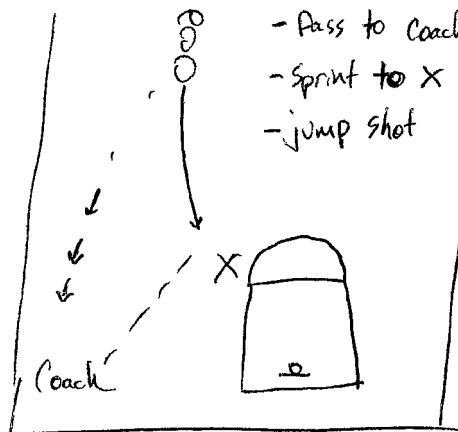 - Pass to Coach
- Sprint to X
- jump shot
X
Coach